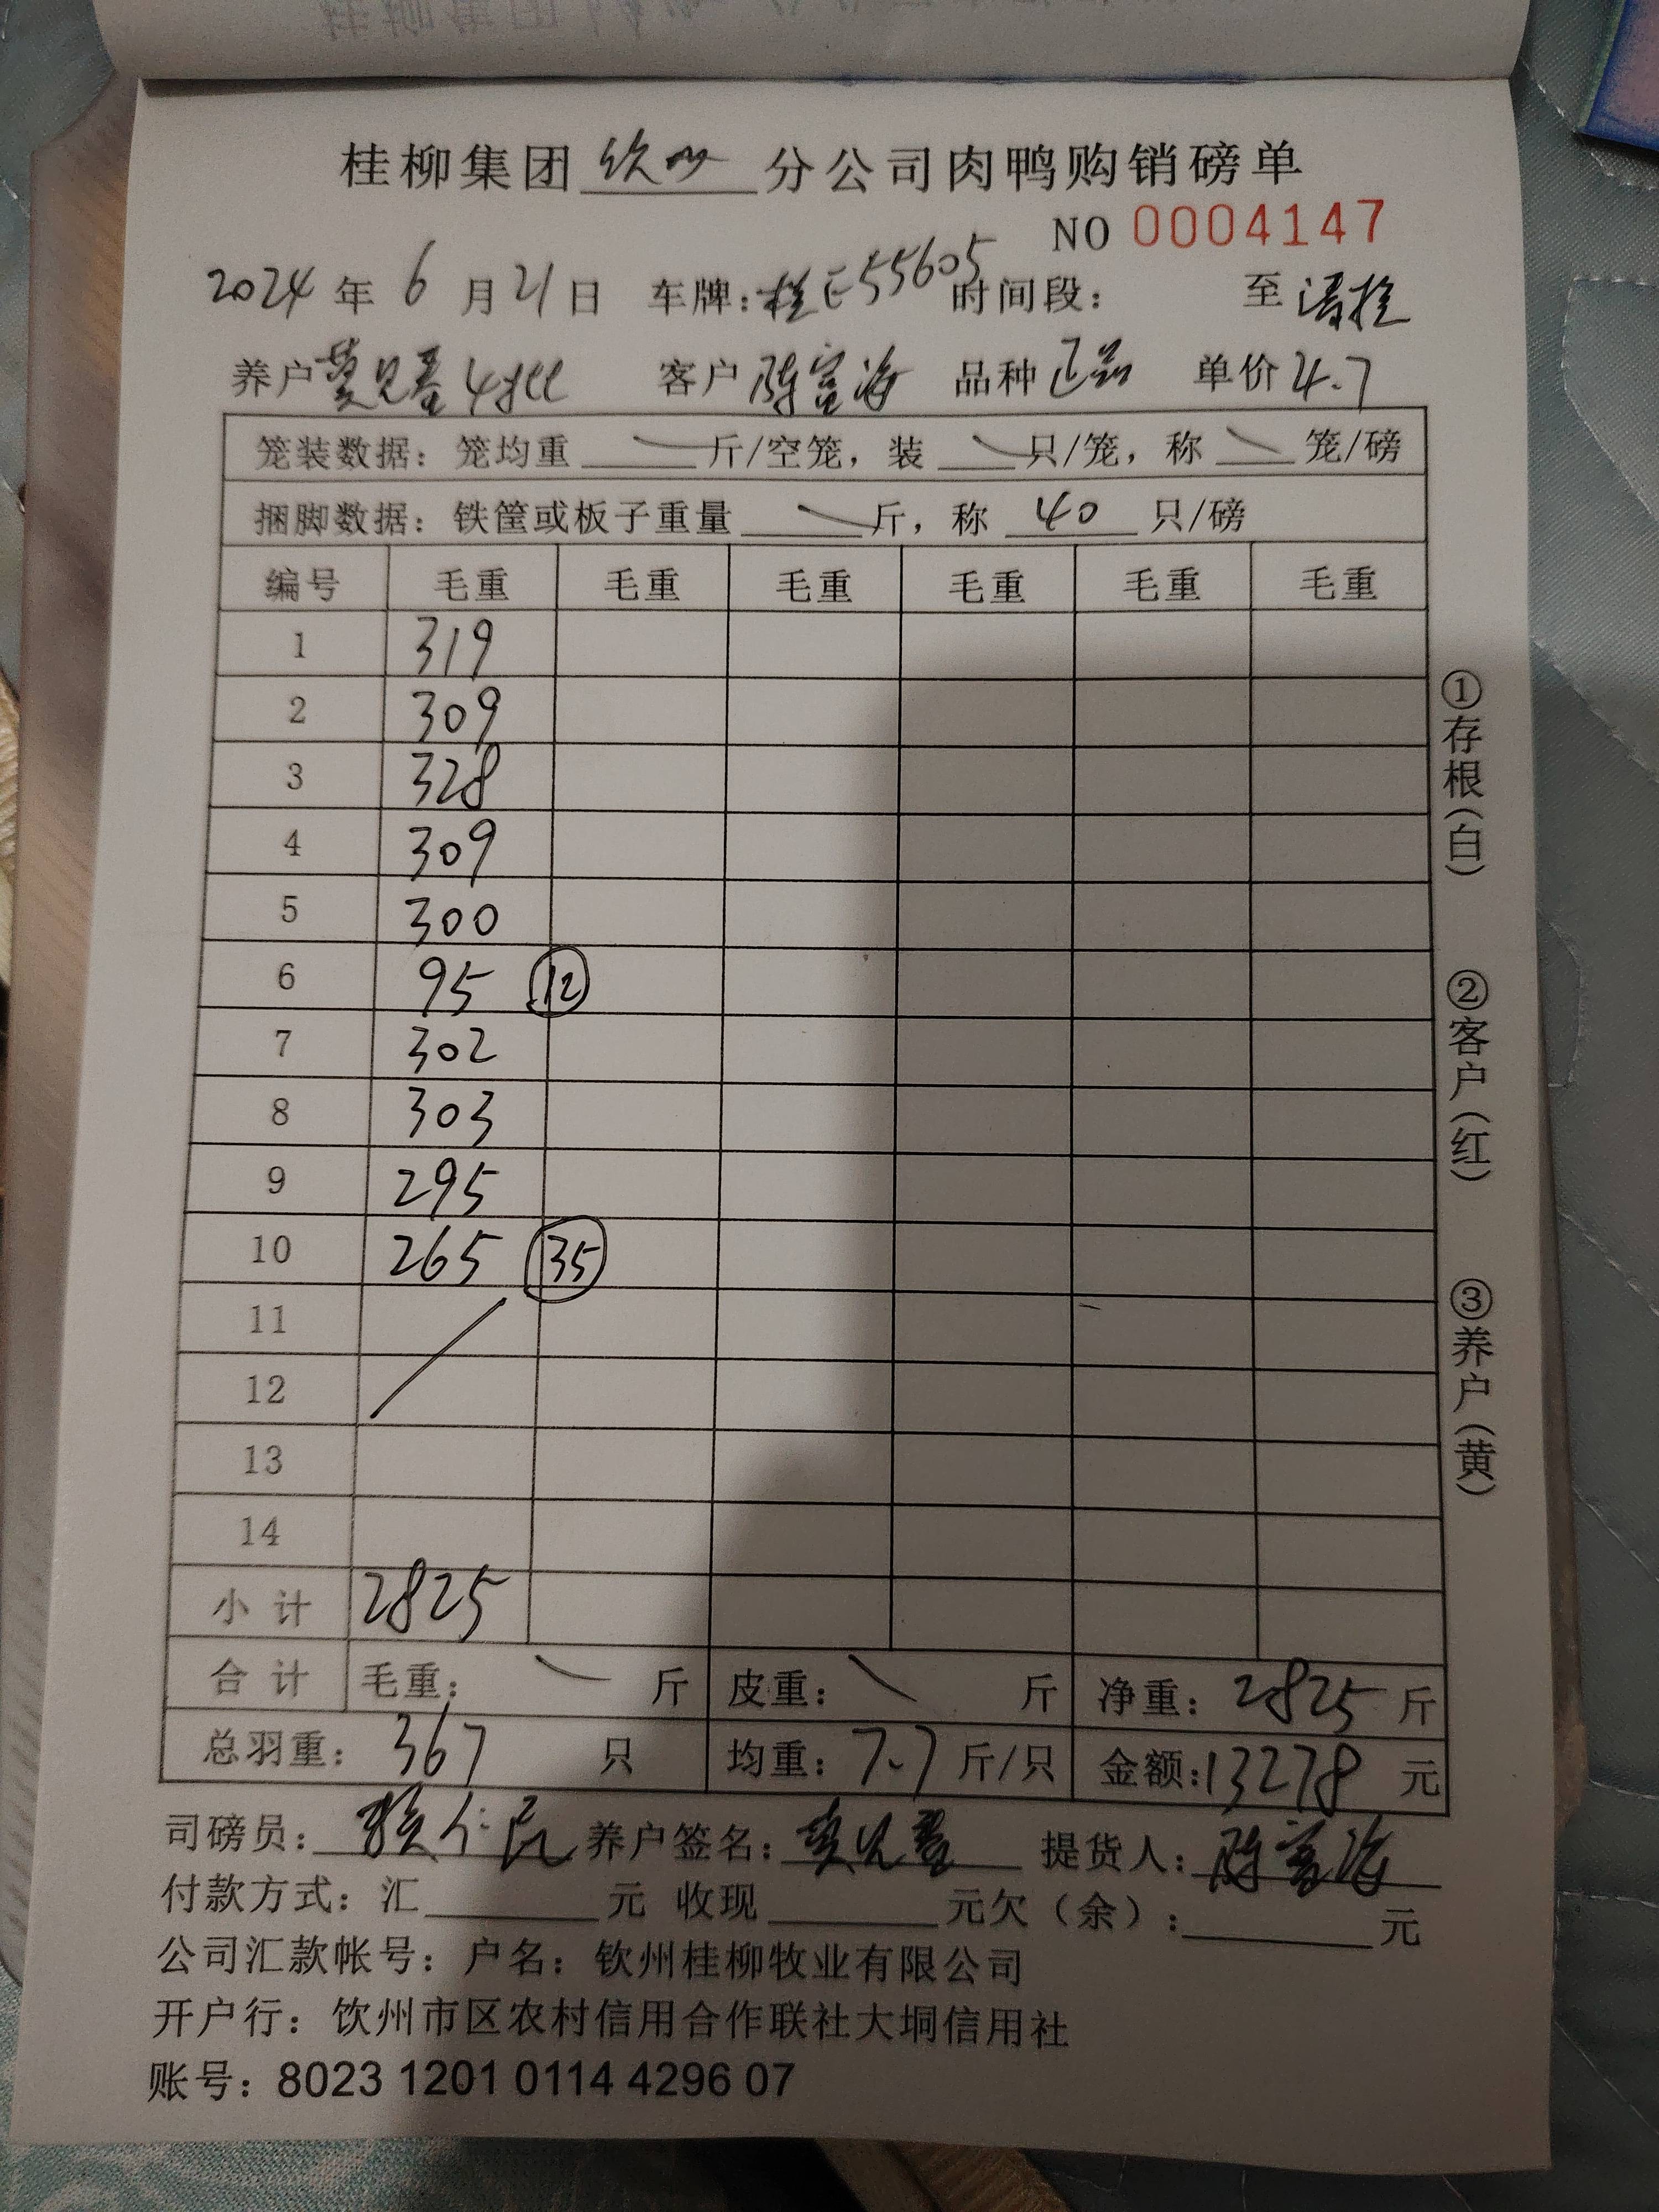 桂柳集团 钦州 分公司肉鸭购销磅单
NO 0004147
2024 年 6 月 21 日 车牌:桂E55605 时间段: 至
养户 客户 陈富海 品种 正品 单价 4.7
笼装数据: 笼均重 斤/空笼, 装 只/笼, 称 笼/磅
捆脚数据: 铁筐或板子重量 斤, 称 40 只/磅
编号 毛重 毛重 毛重 毛重 毛重 毛重
1 319
2 309
3 328
4 309
5 300
6 95 ⑫
7 302
8 303
9 295
10 265 ㉟
11
12
13
14
小计 2825
合计 毛重: 斤 皮重: 斤 净重: 2825 斤
总羽重: 367 只 均重: 7.7 斤/只 金额:13278 元
司磅员: 养户签名: 提货人: 陈富海
付款方式: 汇 元 收现 元欠(余): 元
公司汇款帐号: 户名: 钦州桂柳牧业有限公司
开户行: 钦州市区农村信用合作联社大垌信用社
账号: 8023 1201 0114 4296 07
①存根(白)
②客户(红)
③养户(黄)